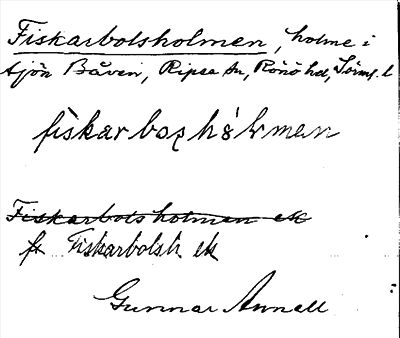 Fiskarbolsholmen, holme i
sjön Båven, Ripsa sn, Rönö hd, Söml. l
fiskarboshólmen
Fiskarbols holmen ek
fr Fiskarbolsh ek
Gunnar Annell